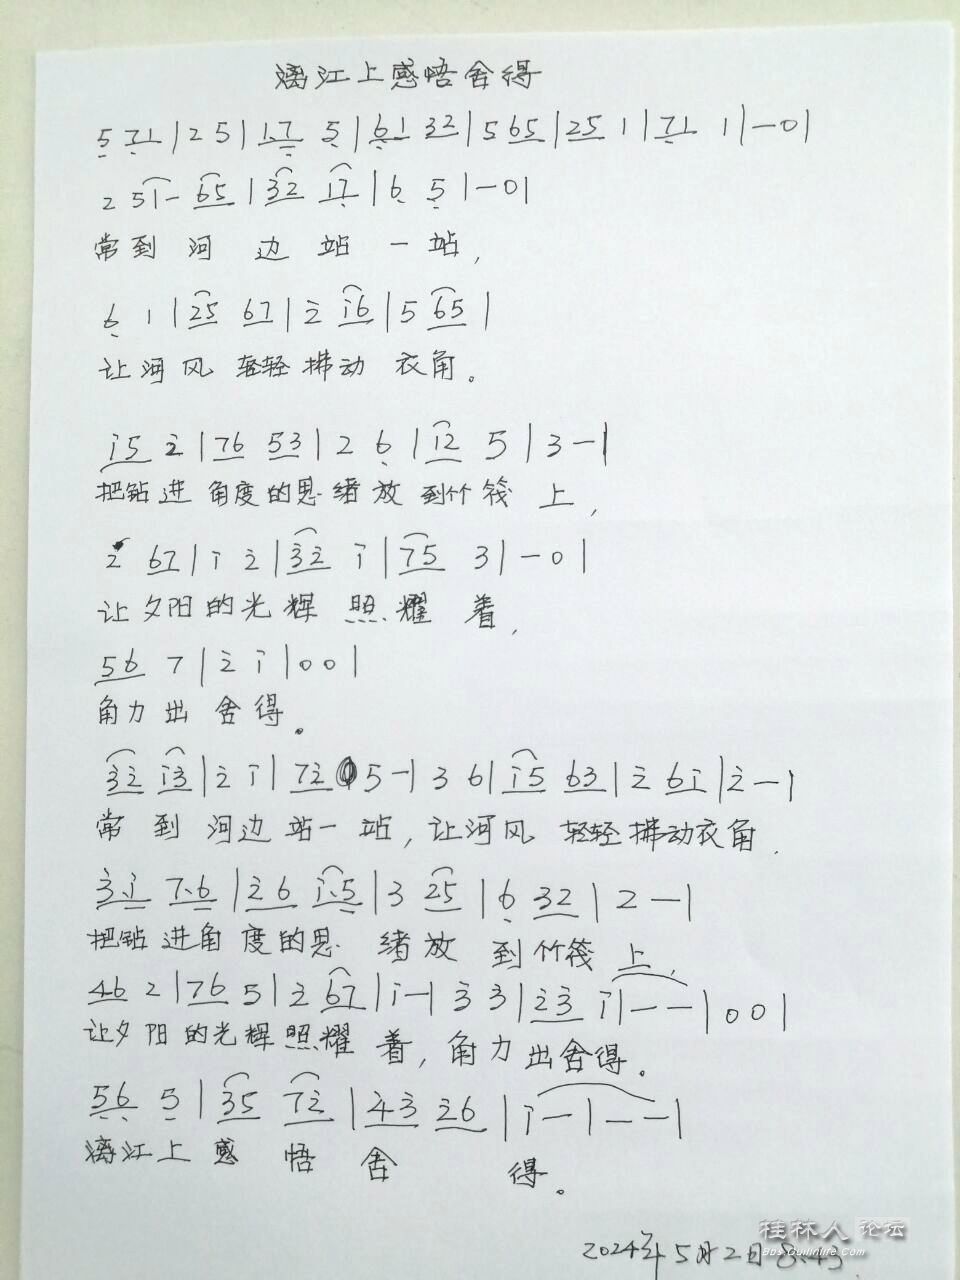 漓江上感悟舍得
5 71 | 2 5 | 1.7 5 | 61 32 | 5 65 | 25 1 | 71 1 | — 0 |
2 51 - 65 | 32 17 | 6 5 | — 0 |
常到河边站一站，
6 1 | 25 67 | 2 16 | 5 65 |
让河风轻轻拂动衣角。
15 2 | 76 53 | 2 6 | 12 5 | 3 — |
把钻进角度的思绪放到竹筏上，
2 67 | 1 2 | 32 1 | 75 3 | — 0 |
让夕阳的光辉照耀着，
56 7 | 2 1 | 0 0 |
角力出舍得。
32 13 | 2 1 | 72 5 — | 3 6 | 15 63 | 2 61 | 2 — |
常到河边站一站，让河风轻轻拂动衣角．
3.1 7.6 | 26 1.5 | 3 25 | 6 32 | 2 — |
把钻进角度的思绪放到竹筏上，
46 2 | 76 5 | 2 67 | 1 — | 3 3 | 23 1 | — — | 0 0 |
让夕阳的光辉照耀着，角力出舍得。
56 5 | 35 72 | 43 26 | 1 — | — — |
漓江上感悟舍得。
2024年5月2日8:43.
桂林人论坛
Bbs.Guilinlife.Com